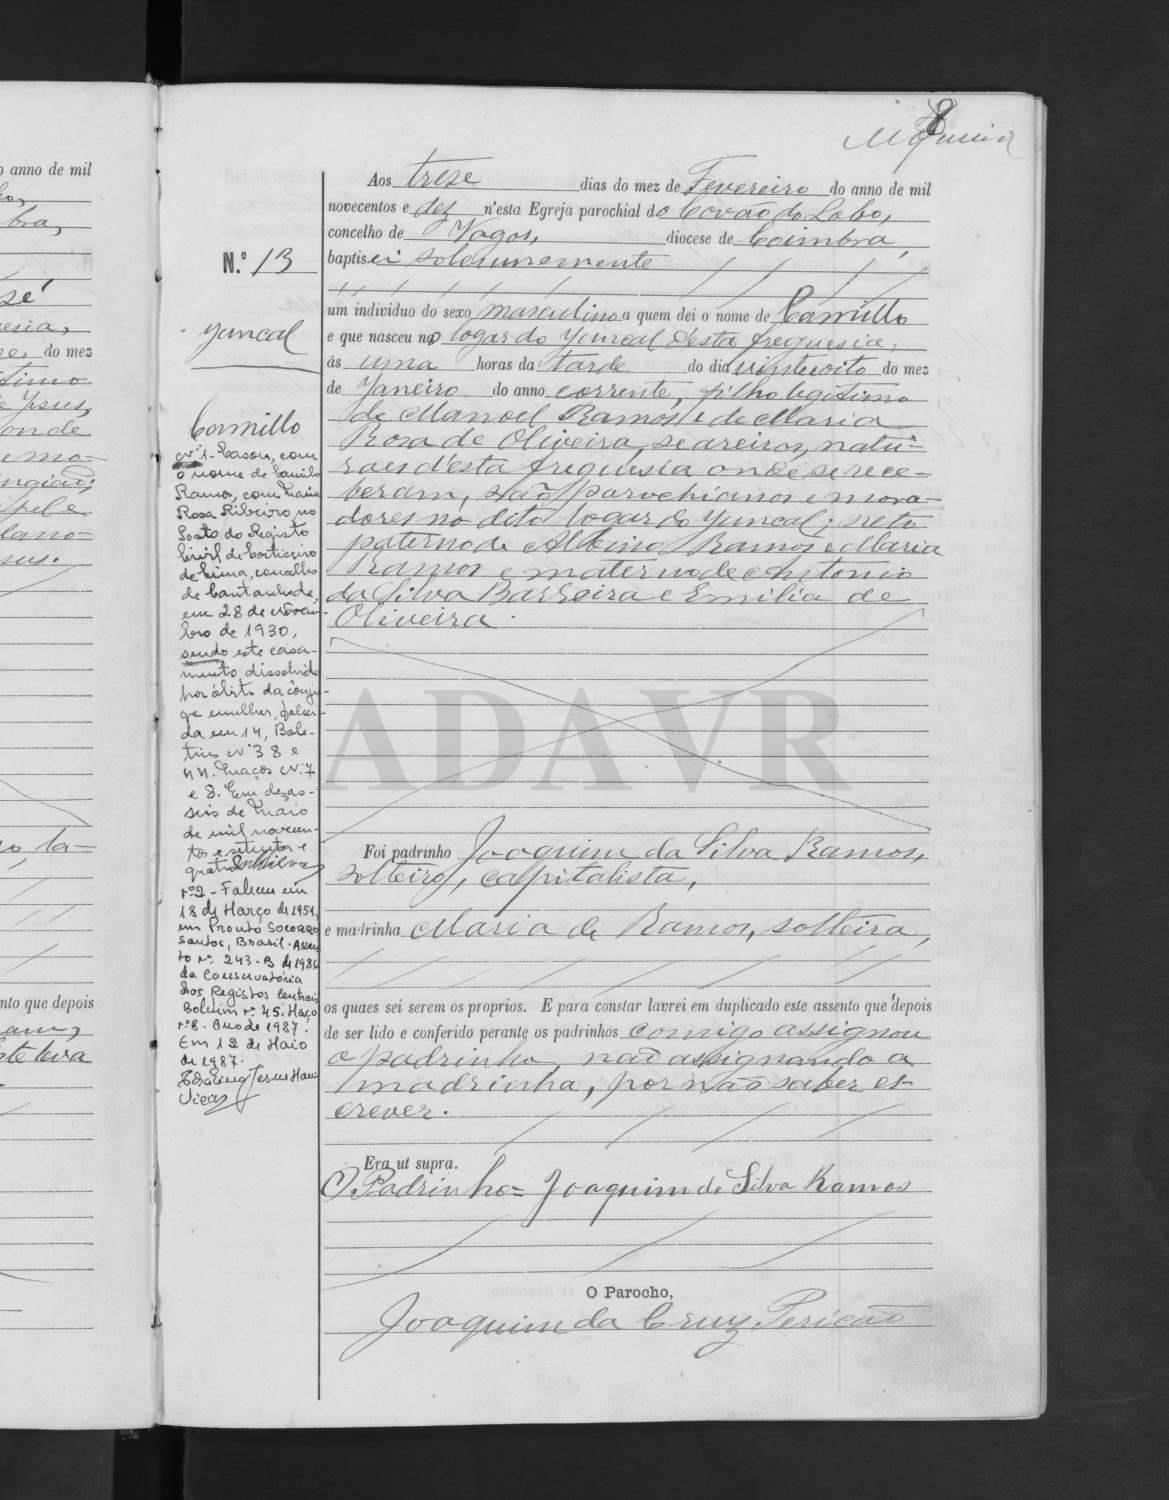 8
Aos treze dias do mez de Fevereiro do anno de mil
novecentos e dez n'esta Egreja parochial do Covão do Lobo,
concelho de Vagos, diocese de Coimbra,
baptisei solemnemente
um individuo do sexo masculino a quem dei o nome de Camillo
e que nasceu no logar do Juncal d'esta freguesia,
ás uma horas da tarde do dia vinte oito do mez
de Janeiro do anno corrente, filho legitimo
de Manoel Ramos e de Maria
Rosa de Oliveira, seareiros, natu-
raes d'esta freguesia onde se rece-
beram, são parochianos e mora-
dores no dito logar do Juncal; neto
paterno de Albino Ramos e Maria
Ramos e materno de Antonio
da Silva Barreira e Emilia de
Oliveira.
Foi padrinho Joaquim da Silva Ramos,
solteiro, capitalista,
e madrinha Maria de Ramos, solteira,
os quaes sei serem os proprios. E para constar lavrei em duplicado este assento que depois
de ser lido e conferido perante os padrinhos comigo assignou
o padrinho, não assignando a
madrinha, por não saber es-
crever.
Era ut supra.
O Padrinho = Joaquim da Silva Ramos
O Parocho,
Joaquim da Cruz Pericão
N.º 13
Juncal
Camillo
Nº 1 - Casou, com
o nome de Camilo
Ramos, com Maria
Rosa Ribeiro, no
Posto do Registo
Civil de Corticeiro
de Cima, concelho
de Cantanhede,
em 28 de Novem-
bro de 1930,
sendo este casa-
mento dissolvido
por óbito da cônju-
ge mulher, faleci-
da em 14, Bole-
tins Nº 38 e
44. Maços Nº 7
e 8. Em dezas-
seis de Maio
de mil novecen-
tos e setenta e
quatro
nº 2 - Faleceu em
18 de Março de 1954,
em Pronto Socorro
Santos, Brasil. Assen-
to nº 243-B de 1986
da Conservatória
dos Registos Centrais
Boletim nº 45. Maço
nº 8. Ano de 1987.
Em 12 de Maio
de 1987.
ADAVR
o anno de mil
bra,
do mez
nto que depois